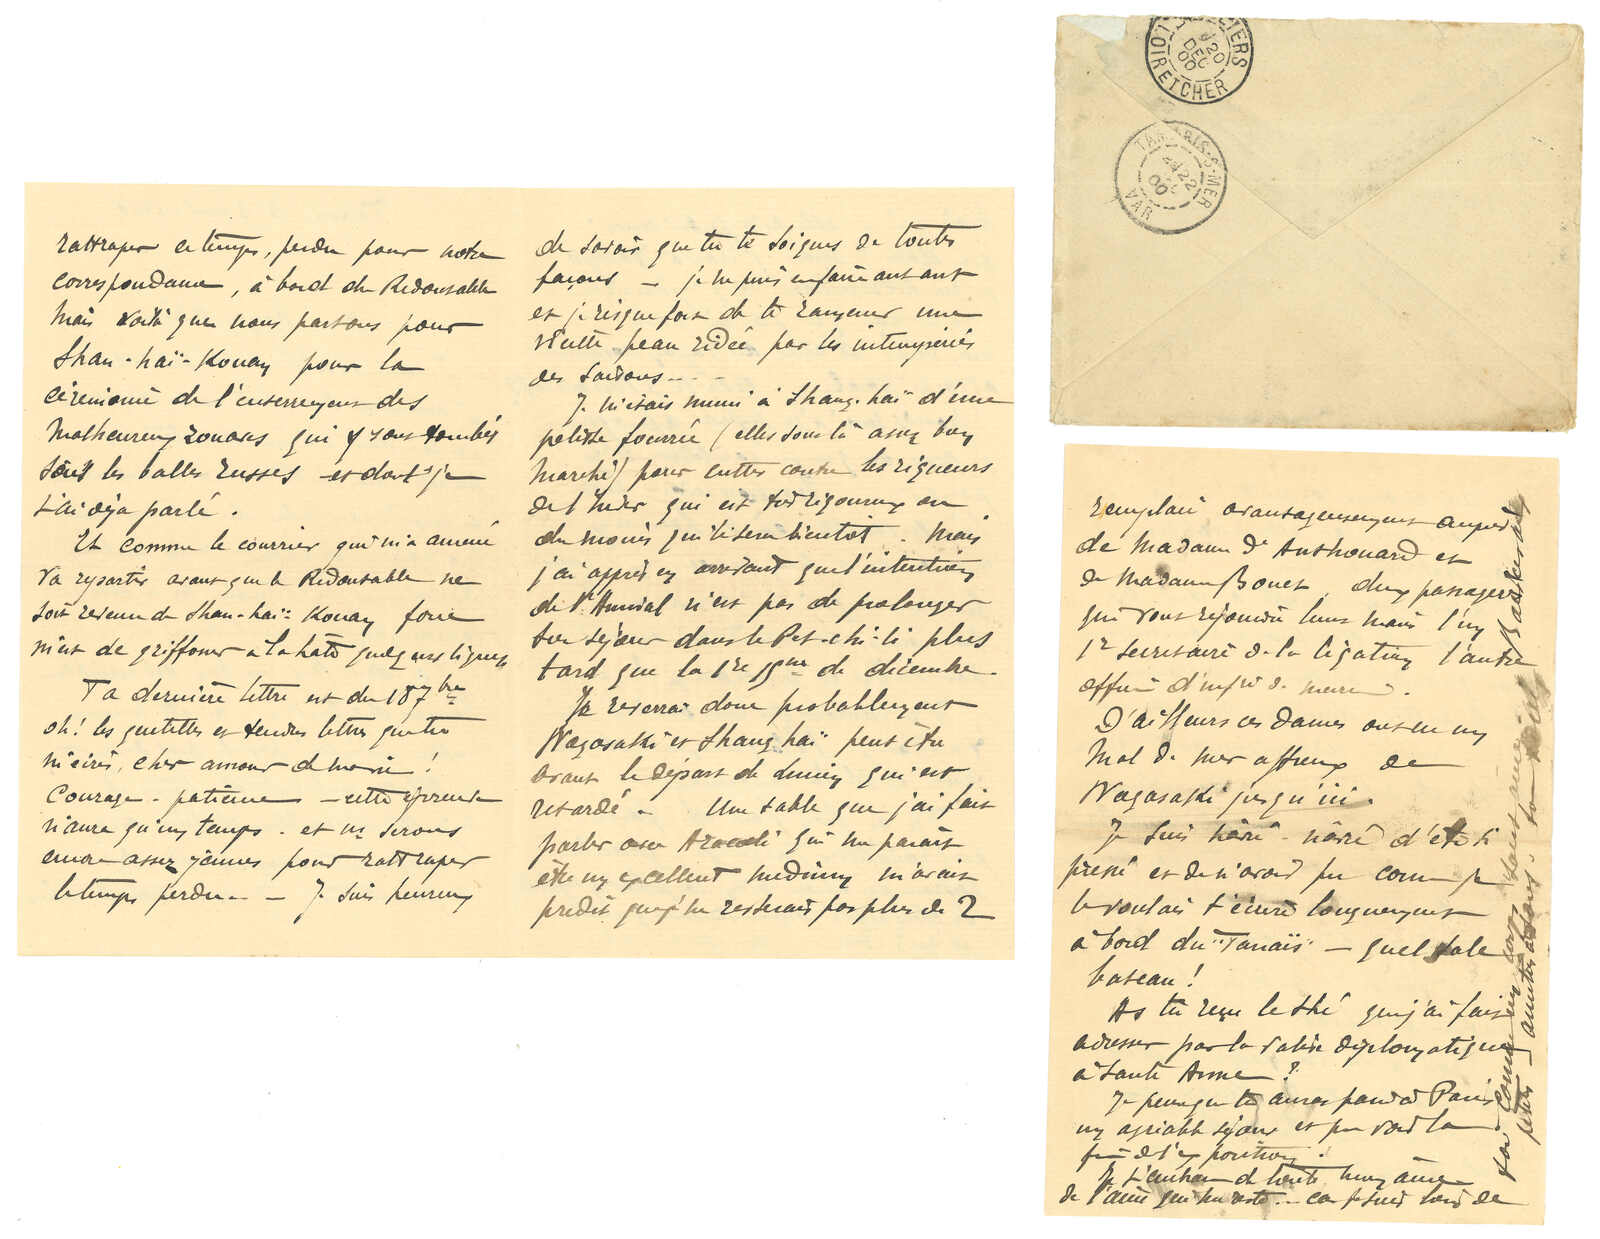 rattraper ce temps, perdu pour notre
correspondance, à bord du Redoutable
Mais voilà que nous partons pour
Shan-haï-Kouan pour la
cérémonie de l'enterrement des
Malheureux zouaves qui y sont tombés
sous les balles russes – et dont je
t'ai déjà parlé.
Et comme le courrier qui m'a amené
va repartir avant que le Redoutable ne
soit revenu de Shan-haï-Kouan force
m'est de griffonner à la hâte quelques lignes
Ta dernière lettre est du 18 7bre
oh! les gentilles et tendres lettres que tu
m'écris, cher amour de
Courage – patience – cette épreuve
n'aura qu'un temps – et ns serons
encore assez jeunes pour rattraper
le temps perdu – – Je suis heureux
de savoir que tu te soignes de toutes
façons – je ne puis en faire autant
et je risque fort de te ramener une
vieille peau ridée par les intempéries
des saisons – – –
Je m'étais muni à Shang-haï d'une
pelisse fourrée (elles sont là assez bon
marché) pour lutter contre les rigueurs
de l'hiver qui est très rigoureux ou
du moins qui le sera bientôt. Mais
j'ai appris en arrivant que l'intention
de l'Amiral n'est pas de prolonger
son séjour dans le Pet-chi-li plus
tard que la 1re 15ne de décembre.
Je reverrai donc probablement
Nagasaki et Shang haï peut être
avant le départ de qui est
retardé – Une table que j'ai fait
parler avec qui me paraît
être un excellent medium m'avait
prédit que je ne resterais pas plus de 2
remplacé avantageusement auprès
de Madame d'Anthouard et
de Madame Bouet, deux passagères
qui vont rejoindre leurs maris l'un
1er secrétaire de la légation l'autre
officier d'infrie de marine.
D'ailleurs ces dames ont eu un
Mal de mer affreux de
Nagasaki jusqu'ici.
Je suis navré – navré d'être si
pressé et de n'avoir pu comme je
le voulais t'écrire longuement
à bord du "Tanaïs" – quel sale
bateau!
As tu reçu le thé que j'ai fait
adresser par la valise diplomatique
à Sainte Anne?
Je pense que tu auras passé à Paris
un agréable séjour et pu voir la
fin de l'exposition.
Je t'embrasse de toute mon âme
de l'âme qui me reste – car je suis
mon corps sans âme
petits – amitiés à tous. ton
TAMARIS-S-MER
22
00
VAR
LOIR ET CHER
20
DEC
00